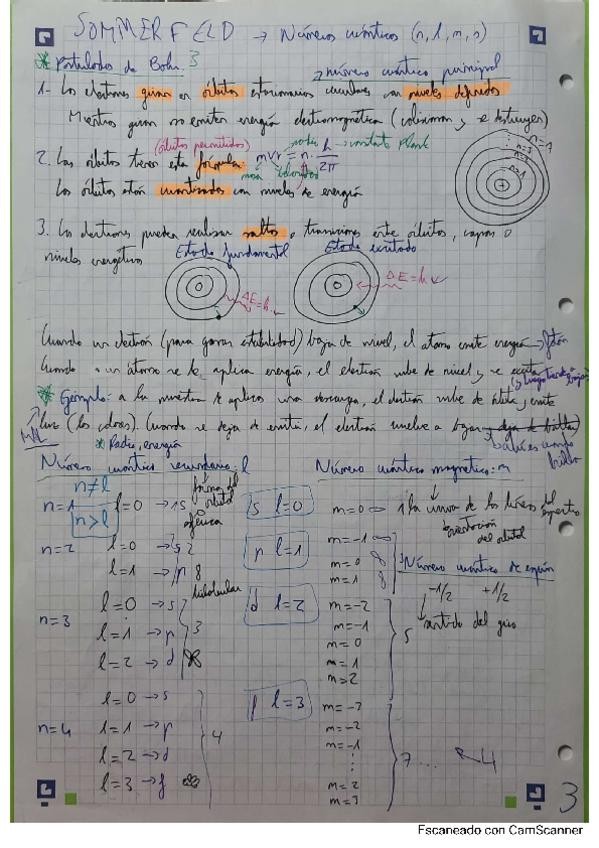 SOMMERFELD → Números cuánticos (n, l, m, s)
* Postulados de Bohr: 3
→ número cuántico principal
1- Los electrones giran en órbitas estacionarias circulares con niveles definidos
Mientras giran no emiten energía electromagnética (colisionan y se destruyen)
(órbitas permitidas) radio → constante Plank
2. Las órbitas tienen esta fórmula: mvr = n · h/2π
masa velocidad
Las órbitas están cuantizadas con niveles de energía
n=1
n=3
n=1
3. Los electrones pueden realizar saltos o transiciones entre órbitas, capas o
niveles energéticos
Estado fundamental
Estado excitado
ΔE=h·ν
ΔE=h·ν
Cuando un electrón (para ganar estabilidad) baja de nivel, el átomo emite energía → fotón
Cuando a un átomo se le aplica energía, el electrón sube de nivel y se excita
(y luego tiende a bajar)
* Ejemplo: a la muestra se aplica una descarga, el electrón sube de órbita y emite
luz (los colores). Cuando se deja de emitir, el electrón vuelve a bajar y deja de brillar
bajar es cuando brilla
* Radio, energía
Número cuántico secundario: l
Número cuántico magnético: m
n≠l
n>l
forma del orbital
n=1 l=0 → 1s
esférica
n=2 l=0 → s 2
l=1 → p 8
bilobular
n=3 l=0 → s
l=1 → p 3
l=2 → d
n=4 l=0 → s
l=1 → p 4
l=2 → d
l=3 → f
s l=0
p l=1
d l=2
f l=3
m=0 1 la
de las líneas del espectro
orientación del orbital
m=-1
m=0
m=1
3
m=-2
m=-1
m=0
m=1
m=2
5
m=-3
m=-2
m=-1
⋮
m=2
m=3
7...
Número cuántico de espín
-1/2 +1/2
sentido del giro
3
Escaneado con CamScanner